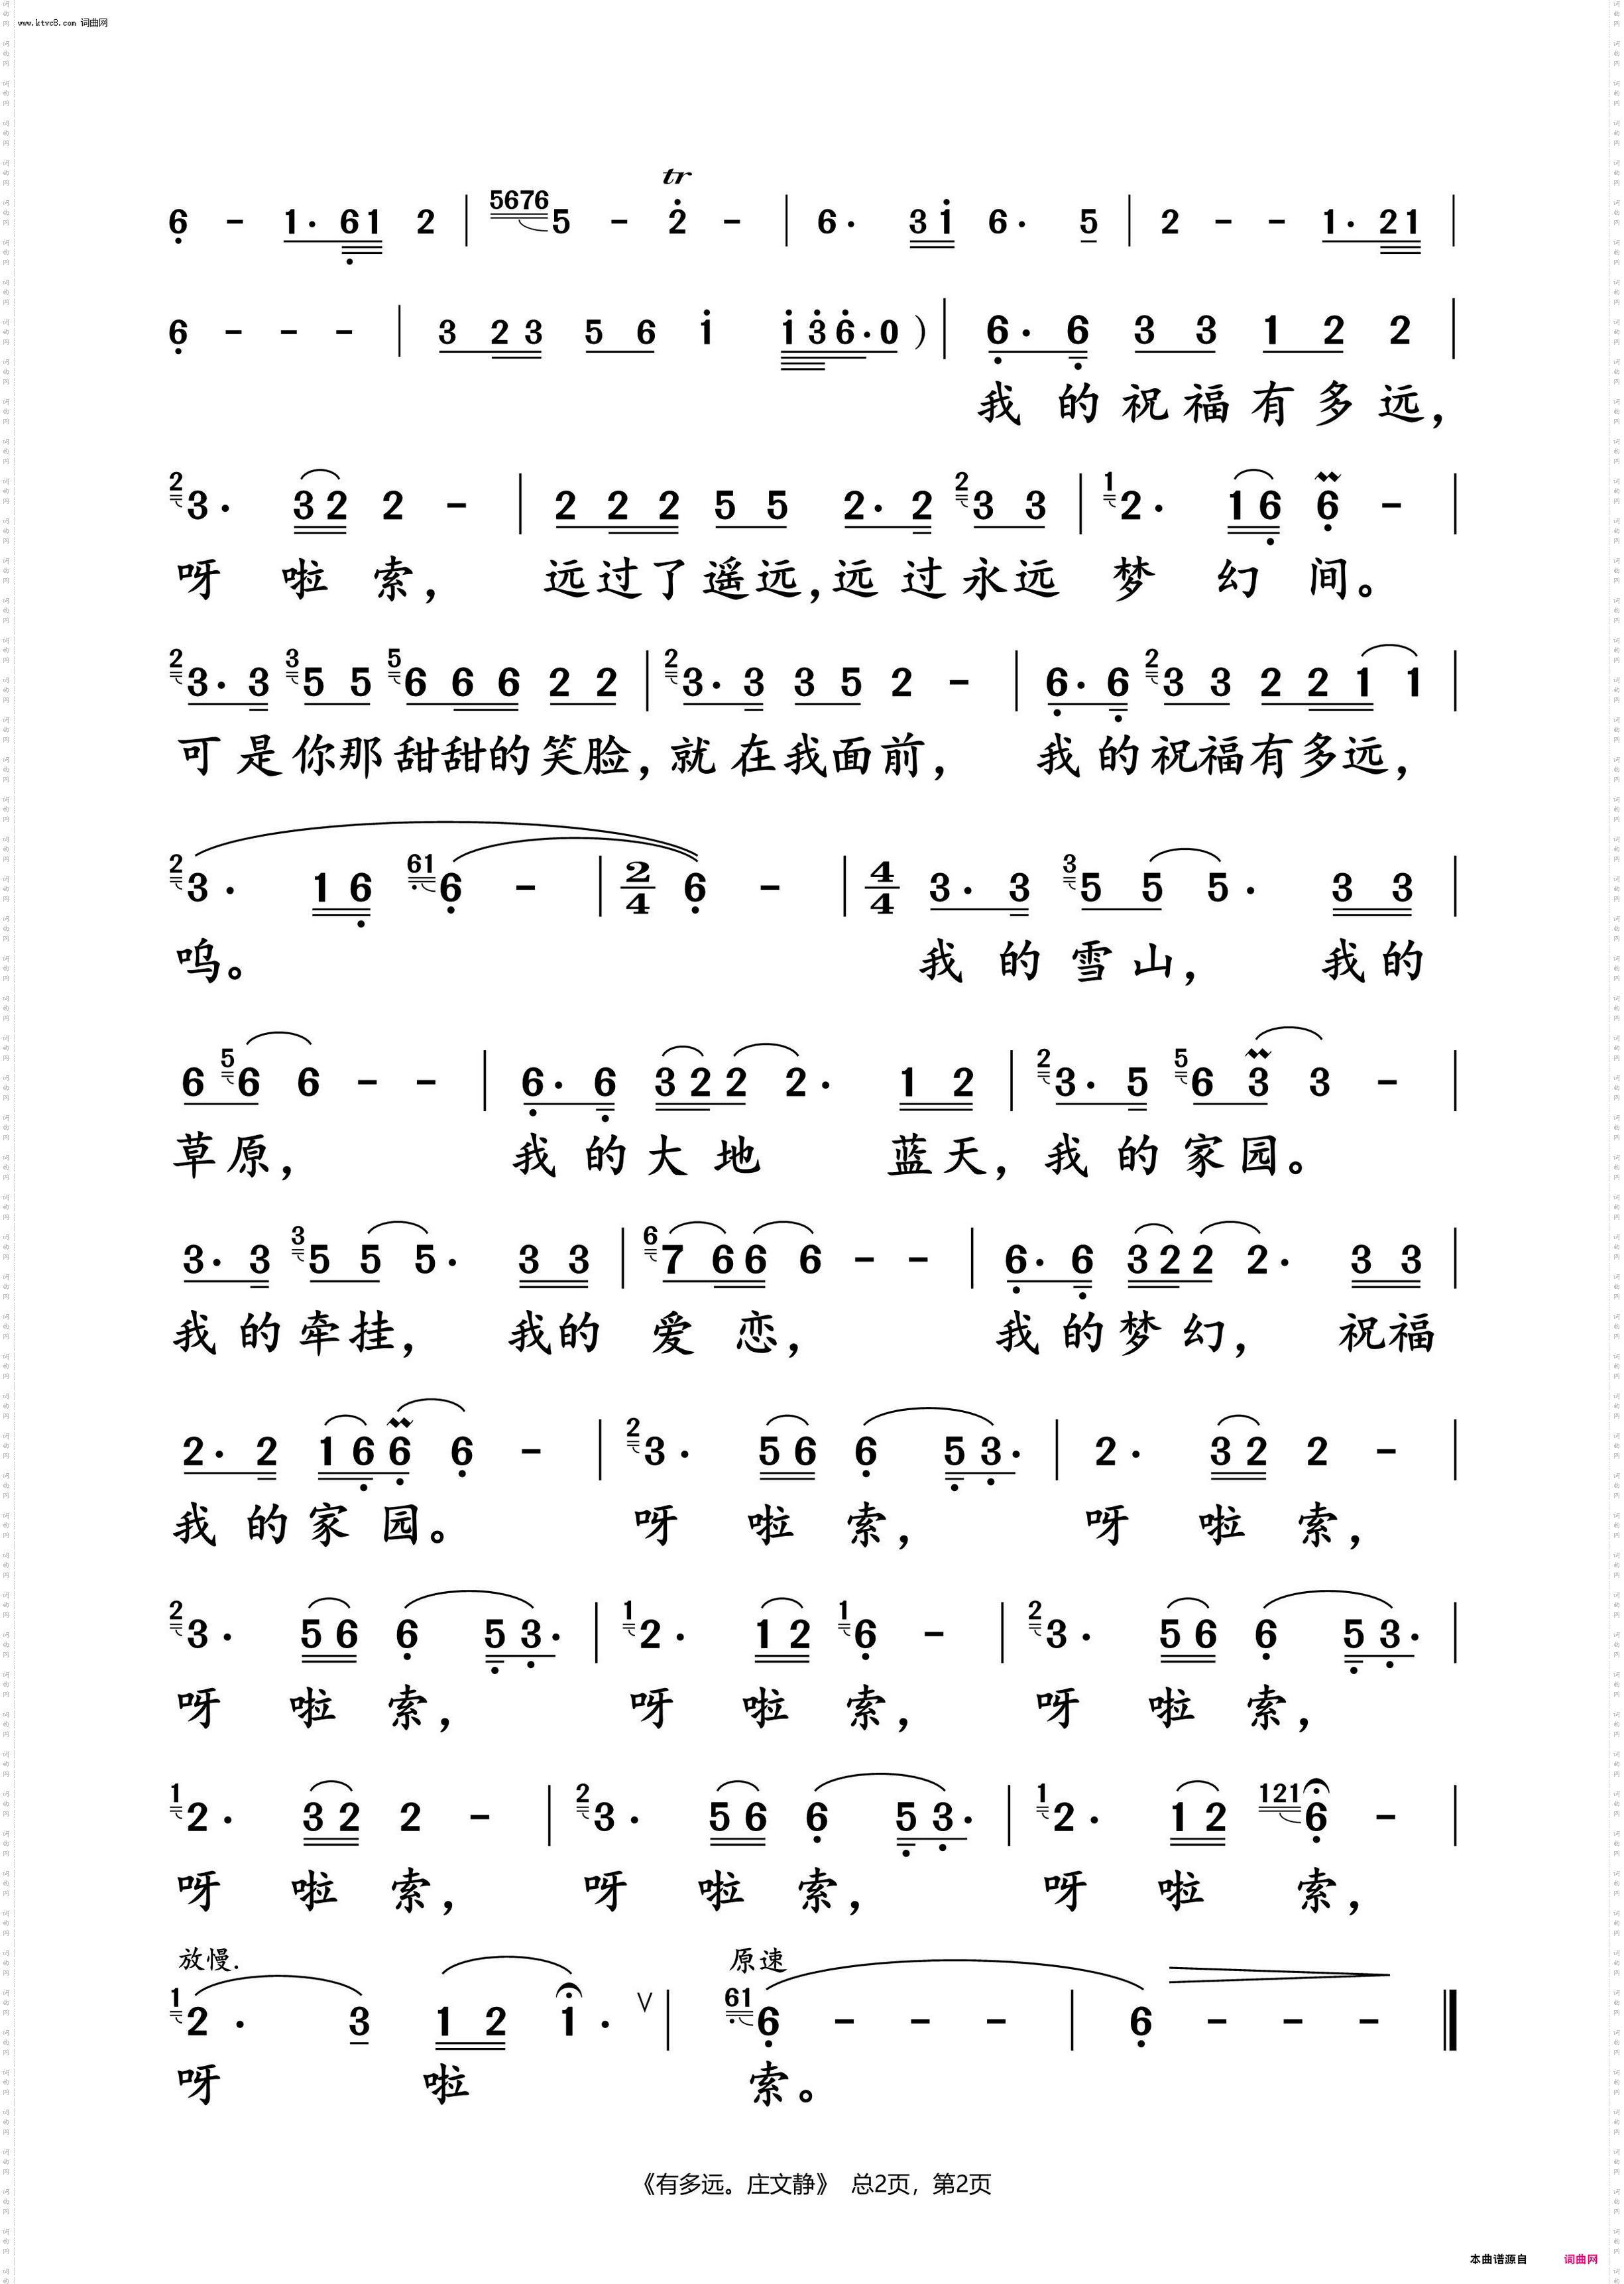 www.ktvc8.com 词曲网
tr
6 - 1. 61 2 | 5676 5 - 2 - | 6. 3 1 6. 5 | 2 - - 1. 21 |
6 - - - | 3 2 3 5 6 1 1 3 6. 0 ) | 6. 6 3 3 1 2 2 |
我 的 祝 福 有 多 远,
2 3. 3 2 2 - | 2 2 2 5 5 2. 2 2 3 3 | 1 2. 1 6 6 - |
呀 啦 索, 远 过 了 遥 远, 远 过 永 远 梦 幻 间。
2 3. 3 3 5 5 5 6 6 6 2 2 | 2 3. 3 3 5 2 - | 6. 6 2 3 3 2 2 1 1 |
可 是 你 那 甜 甜 的 笑 脸, 就 在 我 面 前, 我 的 祝 福 有 多 远,
2 3. 1 6 61 6 - | 2/4 6 - | 4/4 3. 3 3 5 5 5. 3 3 |
呜。 我 的 雪 山, 我 的
6 5 6 6 - - | 6. 6 3 2 2 2. 1 2 | 2 3. 5 5 6 3 3 - |
草 原, 我 的 大 地 蓝 天, 我 的 家 园。
3. 3 3 5 5 5. 3 3 | 6 7 6 6 6 - - | 6. 6 3 2 2 2. 3 3 |
我 的 牵 挂, 我 的 爱 恋, 我 的 梦 幻, 祝 福
2. 2 1 6 6 6 - | 2 3. 5 6 6 5 3. | 2. 3 2 2 - |
我 的 家 园。 呀 啦 索, 呀 啦 索,
2 3. 5 6 6 5 3. | 1 2. 1 2 1 6 - | 2 3. 5 6 6 5 3. |
呀 啦 索, 呀 啦 索, 呀 啦 索,
1 2. 3 2 2 - | 2 3. 5 6 6 5 3. | 1 2. 1 2 121 6 - |
呀 啦 索, 呀 啦 索, 呀 啦 索,
放慢. 原速
1 2. 3 1 2 1. V | 61 6 - - - | 6 - - - ‖
呀 啦 索。
《有多远。庄文静》 总2页, 第2页
本曲谱源自 词曲网